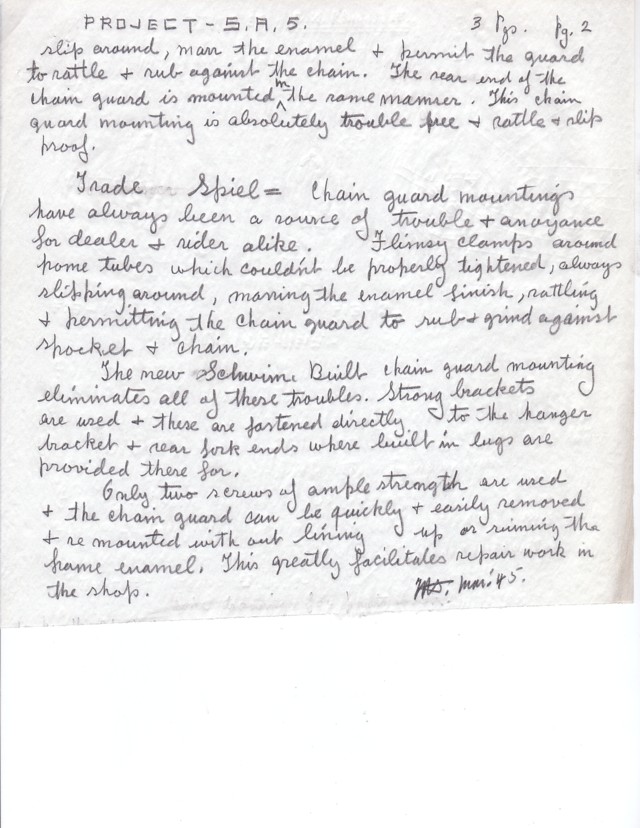 PROJECT - S. A. 5. 3 Pgs. Pg. 2
slip around, marr the enamel + permit the guard
to rattle + rub against the chain. The rear end of the
chain guard is mounted in the same manner. This chain
guard mounting is absolutely trouble free + rattle + slip
proof.
Trade Spiel = Chain guard mountings
have always been a source of trouble + anoyance
for dealer + rider alike. Flimsy clamps around
frame tubes which couldn't be properly tightened, always
slipping around, marring the enamel finish, rattling
+ permitting the chain guard to rub + grind against
sprocket + chain.
The new Schwinn Built chain guard mounting
eliminates all of these troubles. Strong brackets
are used + these are fastened directly to the hanger
bracket + rear fork ends where built in lugs are
provided there for.
Only two screws of ample strength are used
+ the chain guard can be quickly + easily removed
+ re mounted with out lining up or ruining the
frame enamel. This greatly facilitates repair work in
the shop. Mar. 45.